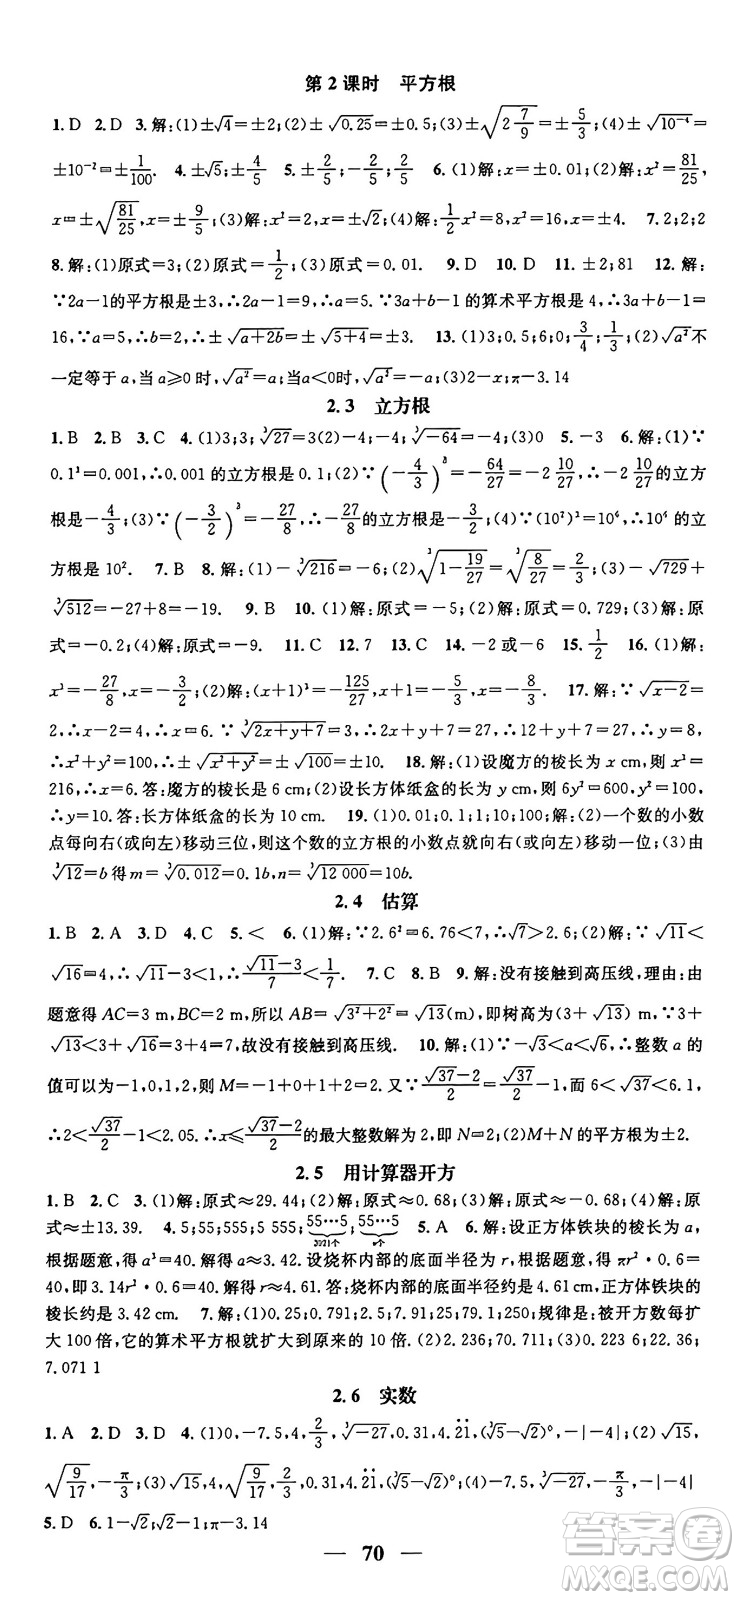 第2课时　平方根
1. D　2. D　3. 解:(1)±√4=±2;(2)±√0.25=±0.5;(3)±√(2 7/9)=±5/3;(4)±√(10⁻⁴)=
±10⁻²=±1/100.　4. ±√5;±4/5　5. ±2/5;-2/5;2/5　6. (1)解:x=±0.01.　(2)解:x²=81/25,
x=±√(81/25),x=±9/5;(3)解:x²=2,x=±√2;(4)解:1/2x²=8,x²=16,x=±4.　7. 2;2;2
8. 解:(1)原式=3;(2)原式=1/2;(3)原式=0.01.　9. D　10. D　11. ±2;81　12. 解:
∵2a-1的平方根是±3,∴2a-1=9,∴a=5,∵3a+b-1的算术平方根是4,∴3a+b-1=
16,∵a=5,∴b=2,∴±√(a+2b)=±√(5+4)=±3.　13. (1)3;0.5;6;3/4;1/3;0;(2)√(a²)不
一定等于a,当a⩾0时,√(a²)=a;当a<0时,√(a²)=-a;π-3.14
2.3　立方根
1. B　2. B　3. C　4. (1)3;3;³√27=3(2)-4;-4;³√-64=-4;(3)0　5. -3　6. 解:(1)∵
0.1³=0.001,∴0.001的立方根是0.1;(2)∵(-4/3)³=-64/27=-2 10/27,∴-2 10/27的立方
根是-4/3;(3)∵(-3/2)³=-27/8,∴-27/8的立方根是-3/2;(4)∵(10²)³=10⁶,∴10⁶的立
方根是10².　7. B　8. 解:(1)-³√216=-6;(2)³√(1-19/27)=³√(8/27)=2/3;(3)-√729+
³√512=-27+8=-19.　9. B　10. (1)解:原式=-5;(2)解:原式=0.729;(3)解:原
式=-0.2;(4)解:原式=-9.　11. C　12. 7　13. C　14. -2或-6　15. 1/2　16. (1)解:
x³=-27/8,x=-3/2;(2)解:(x-1)³=-125/27,x-1=-5/3,x=-2/3.　17. 解:∵√(x-2)=
2,∴x-2=4,∴x=6.∵³√(2x+y+7)=3,∴2x+y+7=27,∴12+y+7=27,∴y=8,
∴x²+y²=6²+8²=100,∴±√(x²+y²)=±√100=±10.　18. 解:(1)设魔方的棱长为x cm,则x³=
216,x=6.答:魔方的棱长是6 cm;(2)设长方体纸盒的长为y cm,则6y²=600,y²=100,
∴y=10.答:长方体纸盒的长为10 cm.　19. (1)0.01;0.1;1;10;100;解:(2)一个数的小数
点每向右(或向左)移动三位,则这个数的立方根的小数点就向右(或向左)移动一位;(3)由
³√12=b得m=³√0.012=0.1b,n=³√12 000=10b.
2.4　估算
1. B　2. A　3. D　4. C　5. <　6. (1)解:∵2.6²=6.76<7,∴√7>2.6;(2)解:∵√11<
√16=4,∴√11-3<1,∴(√11-3)/7<1/7.　7. C　8. B　9. 解:没有接触到高压线,理由:由
题意得AC=3 m,BC=2 m,所以AB=√(3²+2²)=√13(m),即树高为(3+√13) m,∵3<
√13<4,∴6<3+√13<7,故没有接触到高压线.　10. 解:(1)∵-√3<a<√6,∴整数a的
值可以为-1,0,1,2,则M=-1+0+1+2=2.又∵(√37-2)/2=√37/2-1,而6<√37<6.1,
∴2<(√37-2)/2<2.05.∴x⩽(√37-2)/2的最大整数解为2,即N=2;(2)M+N的平方根为±2.
2.5　用计算器开方
1. B　2. C　3. (1)解:原式≈29.44;(2)解:原式≈0.68;(3)解:原式≈-0.68;(4)解:原
式≈±13.39.　4. >　5. 5;55;555;55…5(2021个);55…5(n个)　6. 解:设正方体铁块的棱长为a,
根据题意,得a³=40.解得a≈3.42.设烧杯内部的底面半径为r,根据题意,得πr²·0.6=
40,即3.14r²·0.6=40.解得r≈4.61.答:烧杯内部的底面半径是4.61 cm,正方体铁块的
棱长约是3.42 cm.　7. 解:(1)0.25;0.791;2.5;7.91;25;79.1;250;规律是:被开方数扩
大100倍,它的算术平方根就扩大到原来的10倍.(2)2.236;70.711;(3)0.223 6;22.36;
7.071 1
2.6　实数
1. A　2. D　3. D　4. (1)0,-7.5,4,2/3,³√-27,0.31,4.2̇1̇,(³√5-√2)⁰,-|-4|;(2)√15,
√(9/17),-π/3;(3)√15,4,√(9/17),2/3,0.31,4.2̇1̇,(³√5-√2)⁰;(4)-7.5,³√-27,-π/3,-|-4|
5. D　6. 1-√2;√2-1;π-3.14
70
作业精灵
MXQE.COM